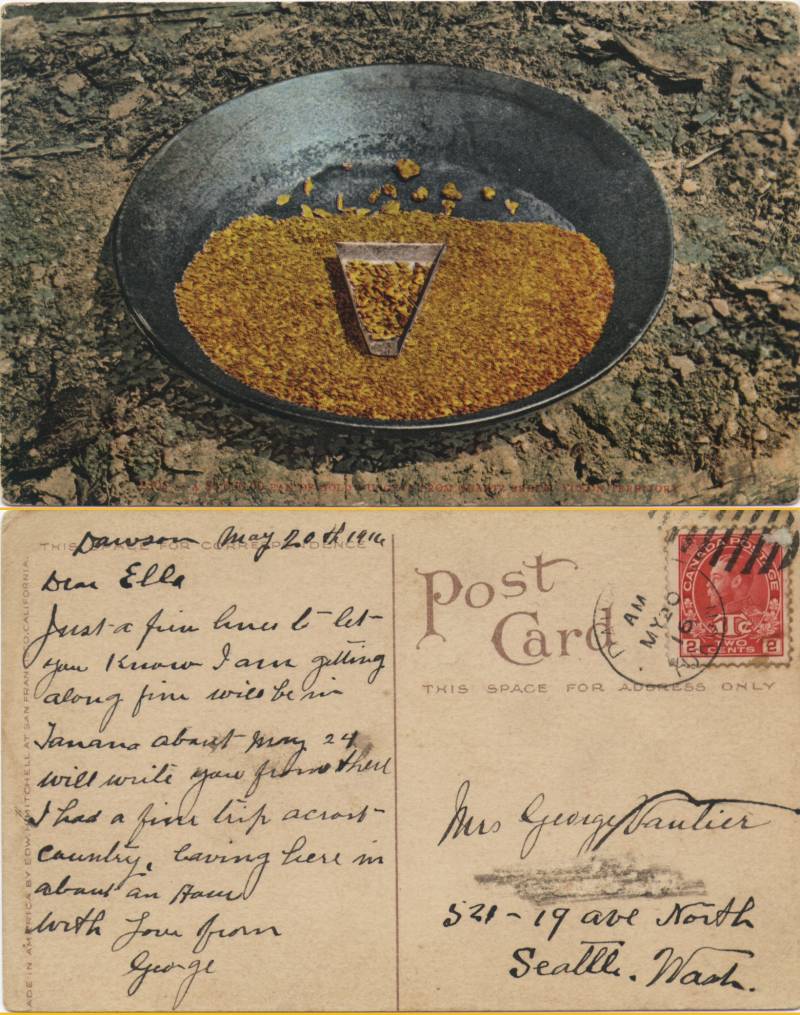 FROM QUARTZ CREEK, YUKON TERRITORY
MADE IN AMERICA BY EDW. H. MITCHELL AT SAN FRANCISCO, CALIFORNIA.
THIS SPACE FOR CORRESPONDENCE
Dawson May 20th 1916
Dear Ella
Just a few lines to let
you know I am getting
along fine will be in
Tanana about May 24
will write you from there
I had a fine trip across
country, leaving here in
about an Hour
With Love from
George
Post
Card
THIS SPACE FOR ADDRESS ONLY
CANADA POSTAGE
1Tc
2 TWO CENTS 2
AM
MY 20
16
Mrs George Vautier
521-19 ave North
Seattle. Wash.